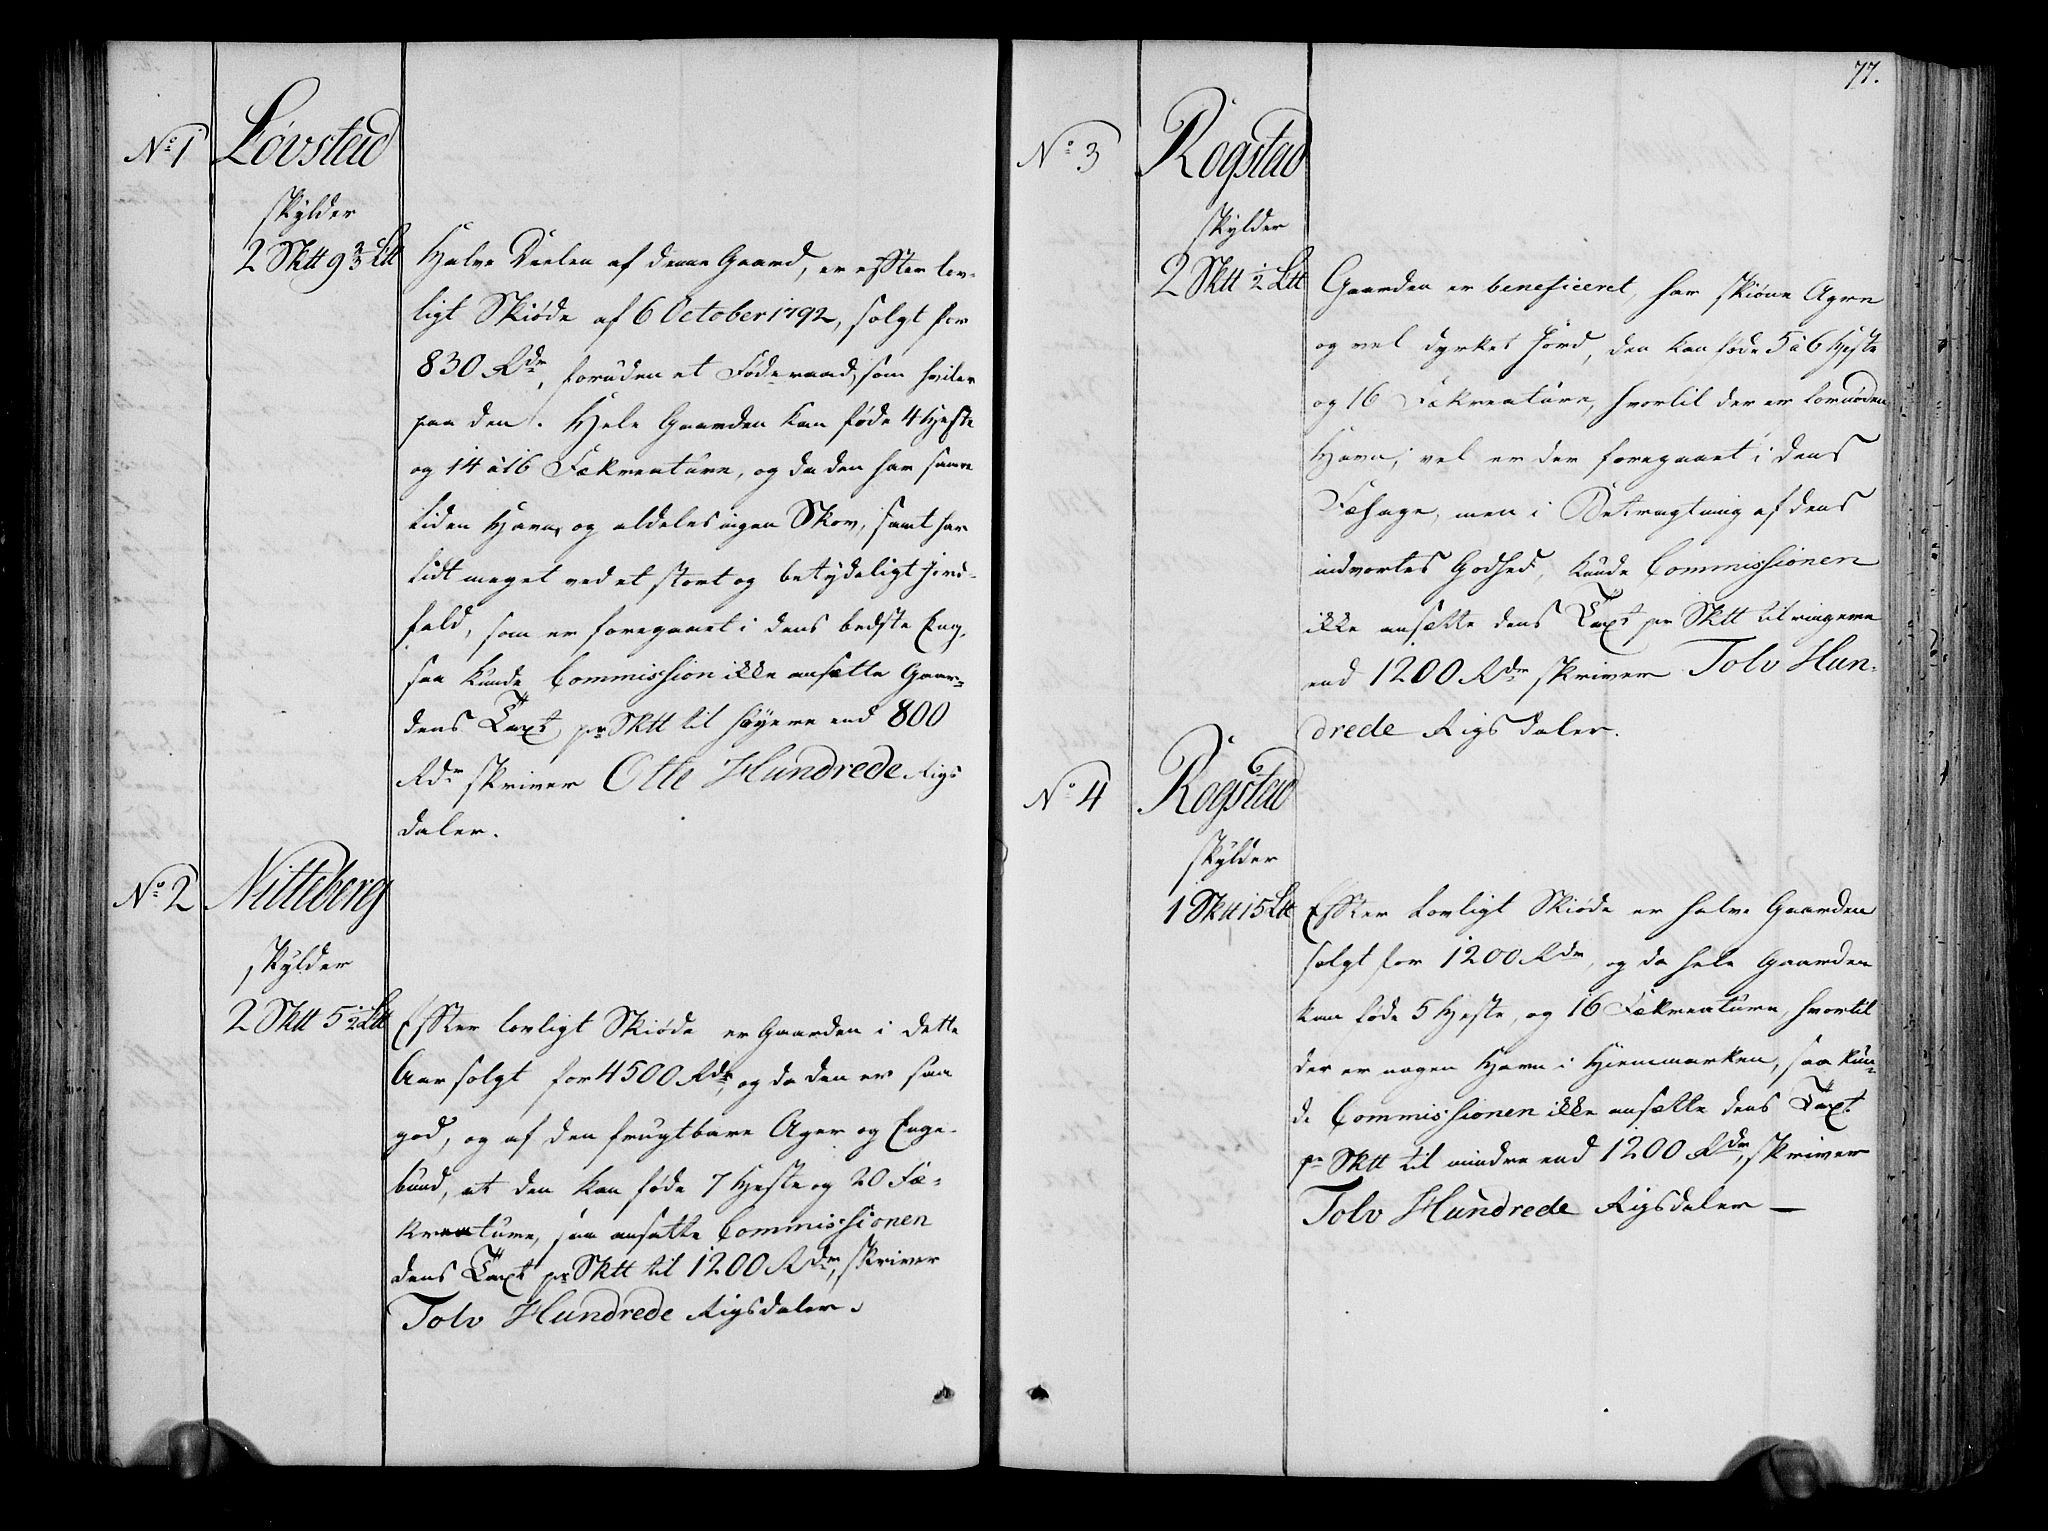 No 1
Løvstad
skylder
2 Sktt 9 2/3 Ltt
Halve Deelen af denne Gaard, er efter lov-
ligt Skiøde af 6 October 1792, solgt for
830 Rdr, foruden et Føderaad, som hviler
paa den. Hele Gaarden kan føde 4 Heste
og 14 a 16 Fækreature, og da den har saare
liden Havn, og aldeles ingen Skov, samt har
lidt meget ved et stort og betydeligt Jord-
fald, som er foregaaet i dens bedste Eng,
saa kunde Commission ikke ansætte Gaar-
dens Taxt, pr Sktt til høyere end 800
Rdr skriver Otte Hundrede Rigs
daler.
No 2
Nitteberg
skylder
2 Sktt 5 1/2 Ltt
Efter lovligt Skiøde er Gaarden i dette
Aar solgt for 4500 Rdr, og da den er saa
god, og af den frugtbare Ager og Enge-
bund, at den kan føde 7 Heste og 20 Fæ-
kreature, saa ansatte Commissionen
dens Taxt pr Sktt til 1200 Rdr, skriver
Tolv Hundrede Rigsdaler.
77.
No 3
Rogstad
skylder
2 Sktt 1/2 Ltt
Gaarden er beneficeret, har skiøne Agre
og vel dyrket Jord, den kan føde 5 a 6 Heste
og 16 Fækreature, hvortil der er fornøden
Havn; vel er der foregaaet i dens
Fæhage, men i Betragtning af dens
indvortes Godhed, kunde Commissionen
ikke ansætte dens Taxt pr Sktt til ringere
end 1200 Rdr skriver Tolv Hun-
drede Rigsdaler.
No 4
Rogstad
skylder
1 Sktt 15 Ltt
Efter lovligt Skiøde er halve Gaarden
solgt for 1200 Rdr, og da hele Gaarden
kan føde 5 Heste, og 16 Fækreature, hvortil
der er nogen Havn i Hiemmarken, saa kun-
de Commissionen ikke ansætte dens Taxt
pr Sktt til mindre end 1200 Rdr, skriver
Tolv Hundrede Rigsdaler —